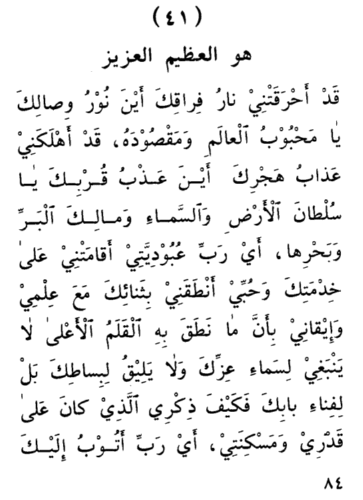 (٤١)
هو العظيم العزيز
قَدْ أَحْرَقَتْنِيْ نارُ فِراقِكَ أَيْنَ نُوْرُ وِصالِكَ
يا مَحْبُوْبُ الْعالَمِ وَمَقْصُوْدَهُ، قَدْ أَهْلَكَنِيْ
عَذابُ هَجْرِكَ أَيْـنَ عَـذْبُ قُـرْبِـكَ يـا
سُلْطانَ الْأَرْضِ وَالسَّمـاءِ وَمـالِـكَ الْبَـرِّ
وَبَحْرِها، أَيْ رَبِّ عُبُوْدِيَّتِيْ أَقامَتْنِيْ عَلىٰ
خِدْمَتِكَ وَحُبِّيْ أَنْطَقَنِيْ بِثَنائِكَ مَعَ عِلْمِيْ
وَإِيْقانِيْ بِأَنَّ ما نَطَقَ بِهِ الْقَلَمُ الْأَعْلىٰ لا
يَنْبَغِيْ لِسَماءِ عِزِّكَ وَلا يَلِيْقُ لِبِساطِكَ بَلْ
لِفِناءِ بابِكَ فَكَيْفَ ذِكْرِي الَّذِيْ كانَ عَلىٰ
قَدْرِيْ وَمَسْكِنَتِيْ، أَيْ رَبِّ أَتُـوْبُ إِلَيْـكَ
٨٤